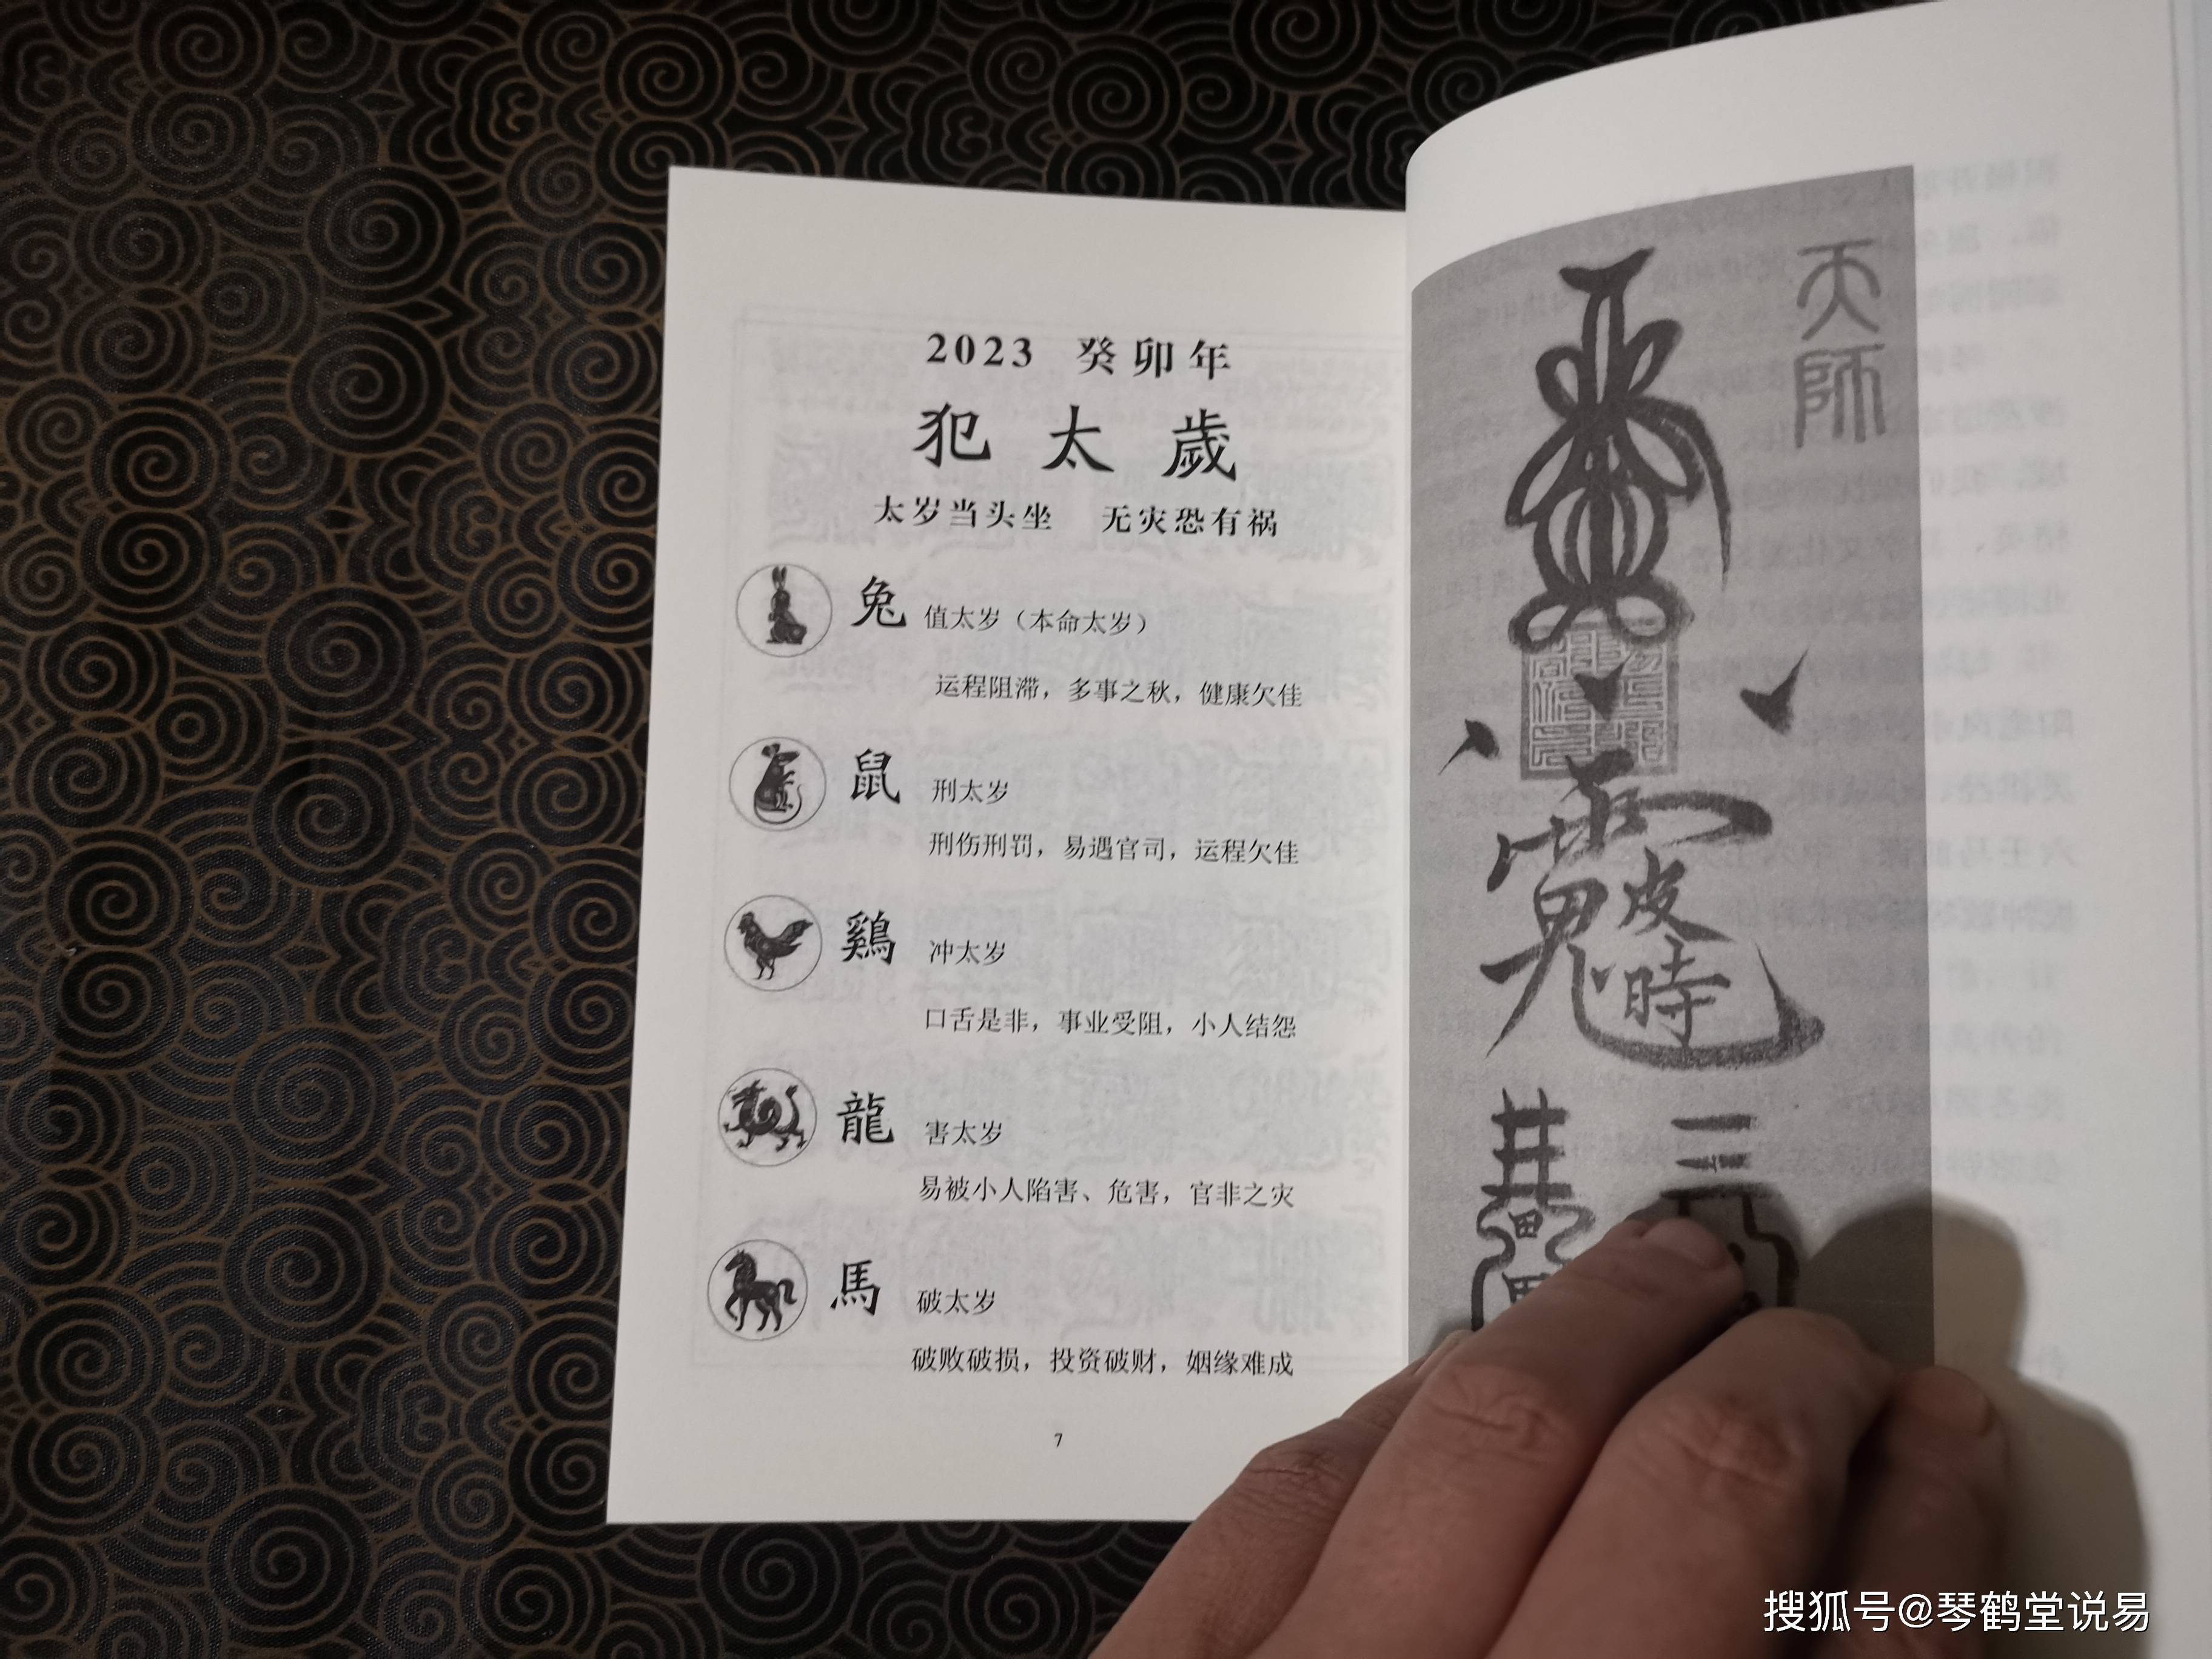 2023 癸卯年
犯太歲
太岁当头坐 无灾恐有祸
兔 值太岁（本命太岁）
运程阻滞，多事之秋，健康欠佳
鼠 刑太岁
刑伤刑罚，易遇官司，运程欠佳
鷄 冲太岁
口舌是非，事业受阻，小人结怨
龍 害太岁
易被小人陷害、危害，官非之灾
馬 破太岁
破败破损，投资破财，姻缘难成
7
天師
皮時
三
井
田
搜狐号@琴鹤堂说易